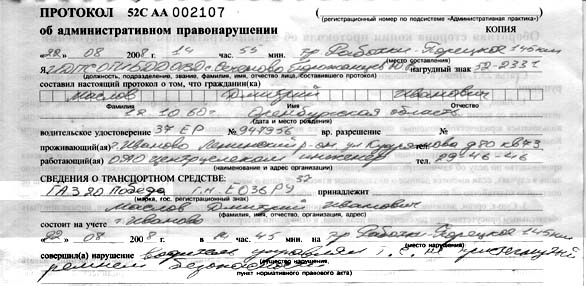 ПРОТОКОЛ 52СAA 002107
(регистрационный номер по подсистеме «Административная практика»)
об административном правонарушении КОПИЯ
«22» 08 2008 г. 14 час. 55 мин. тр Работки-Порецкое 145км
(место составления)
Я нагрудный знак 52-2331
(должность, подразделение, звание, фамилия, имя, отчество лица, составившего протокол)
составил настоящий протокол о том, что гражданин(ка)
Маслов Дмитрий Иванович
Фамилия Имя Отчество
12 10 60г Оренбургская область
(дата и место рождения)
водительское удостоверение 37 ЕР № 947956 вр. разрешение №
проживающий(ая) г Иваново Ленинский р-он ул д 70 кв 73
работающий(ая) ОАО инженер тел. 29-46-46
(наименование и адрес организации)
СВЕДЕНИЯ О ТРАНСПОРТНОМ СРЕДСТВЕ: 37
ГАЗ 20 Победа Г.н. Е036РУ принадлежит
(марка, гос. регистрационный знак)
Маслов Дмитрий Иванович
(фамилия, имя, отчество, организация, адрес)
состоит на учете г. Иваново
«22» 08 2008 г. в час. 45 мин. на тр Работки-Порецкое 145км
(место нарушения)
совершил(а) нарушение водитель управлял т.с.
ремнем безопасности
(существо нарушения)
пункт нормативного правового акта)